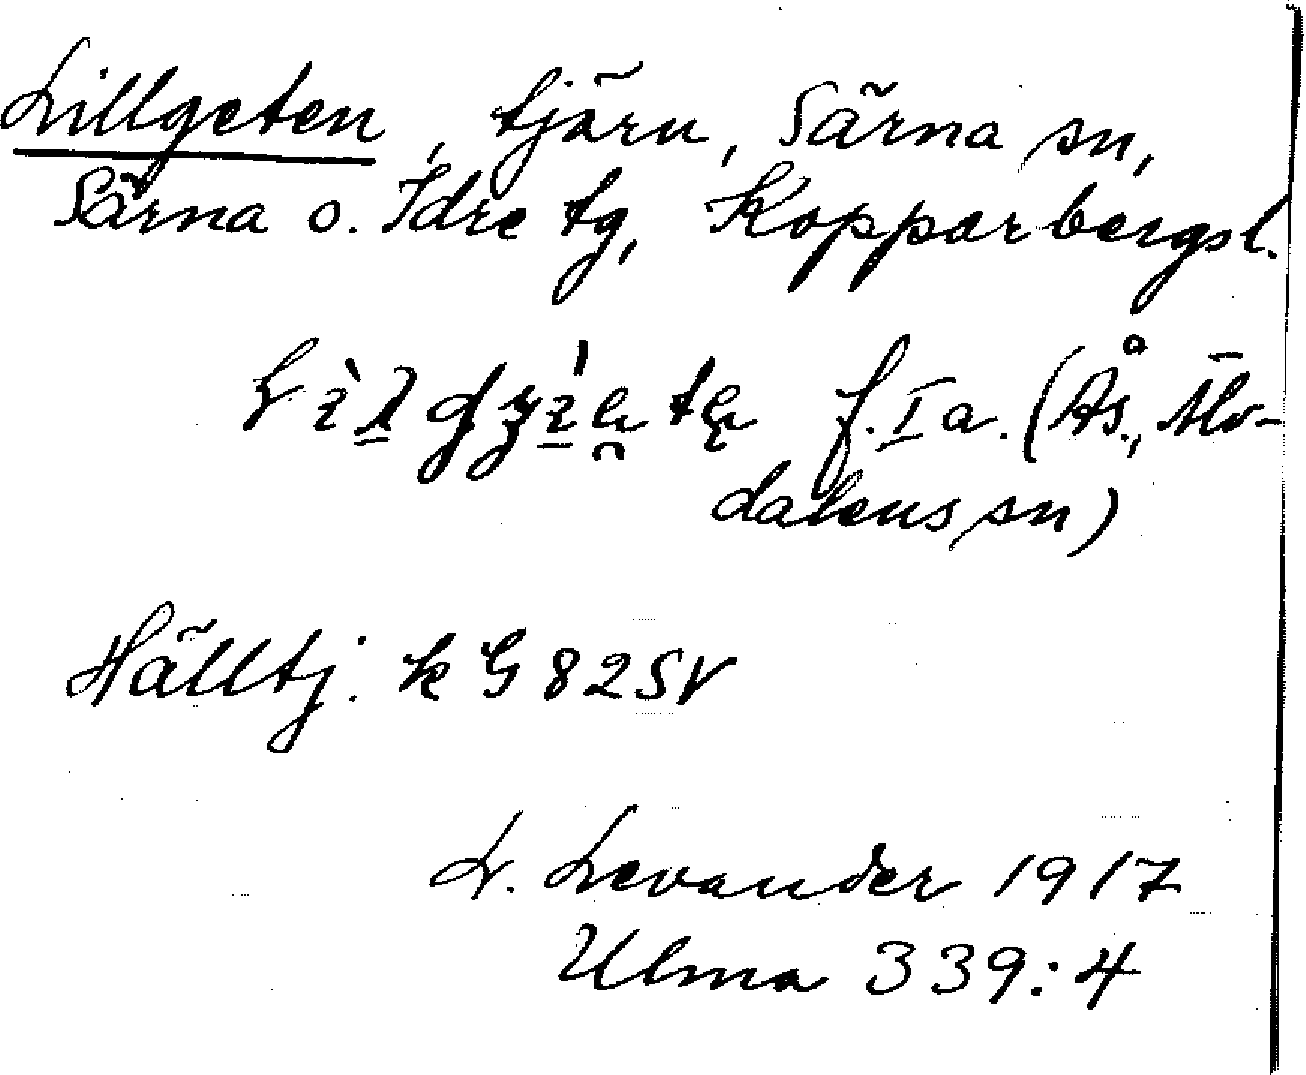 Lillgeten, tjärn, Särna sn,
Särna o. Idre tg, Kopparbergsl.
f. I a. (Ås., Älv-
dalens sn)
Hälltj. k G 82 SV
L. Levander 1917
Ulma 339:4